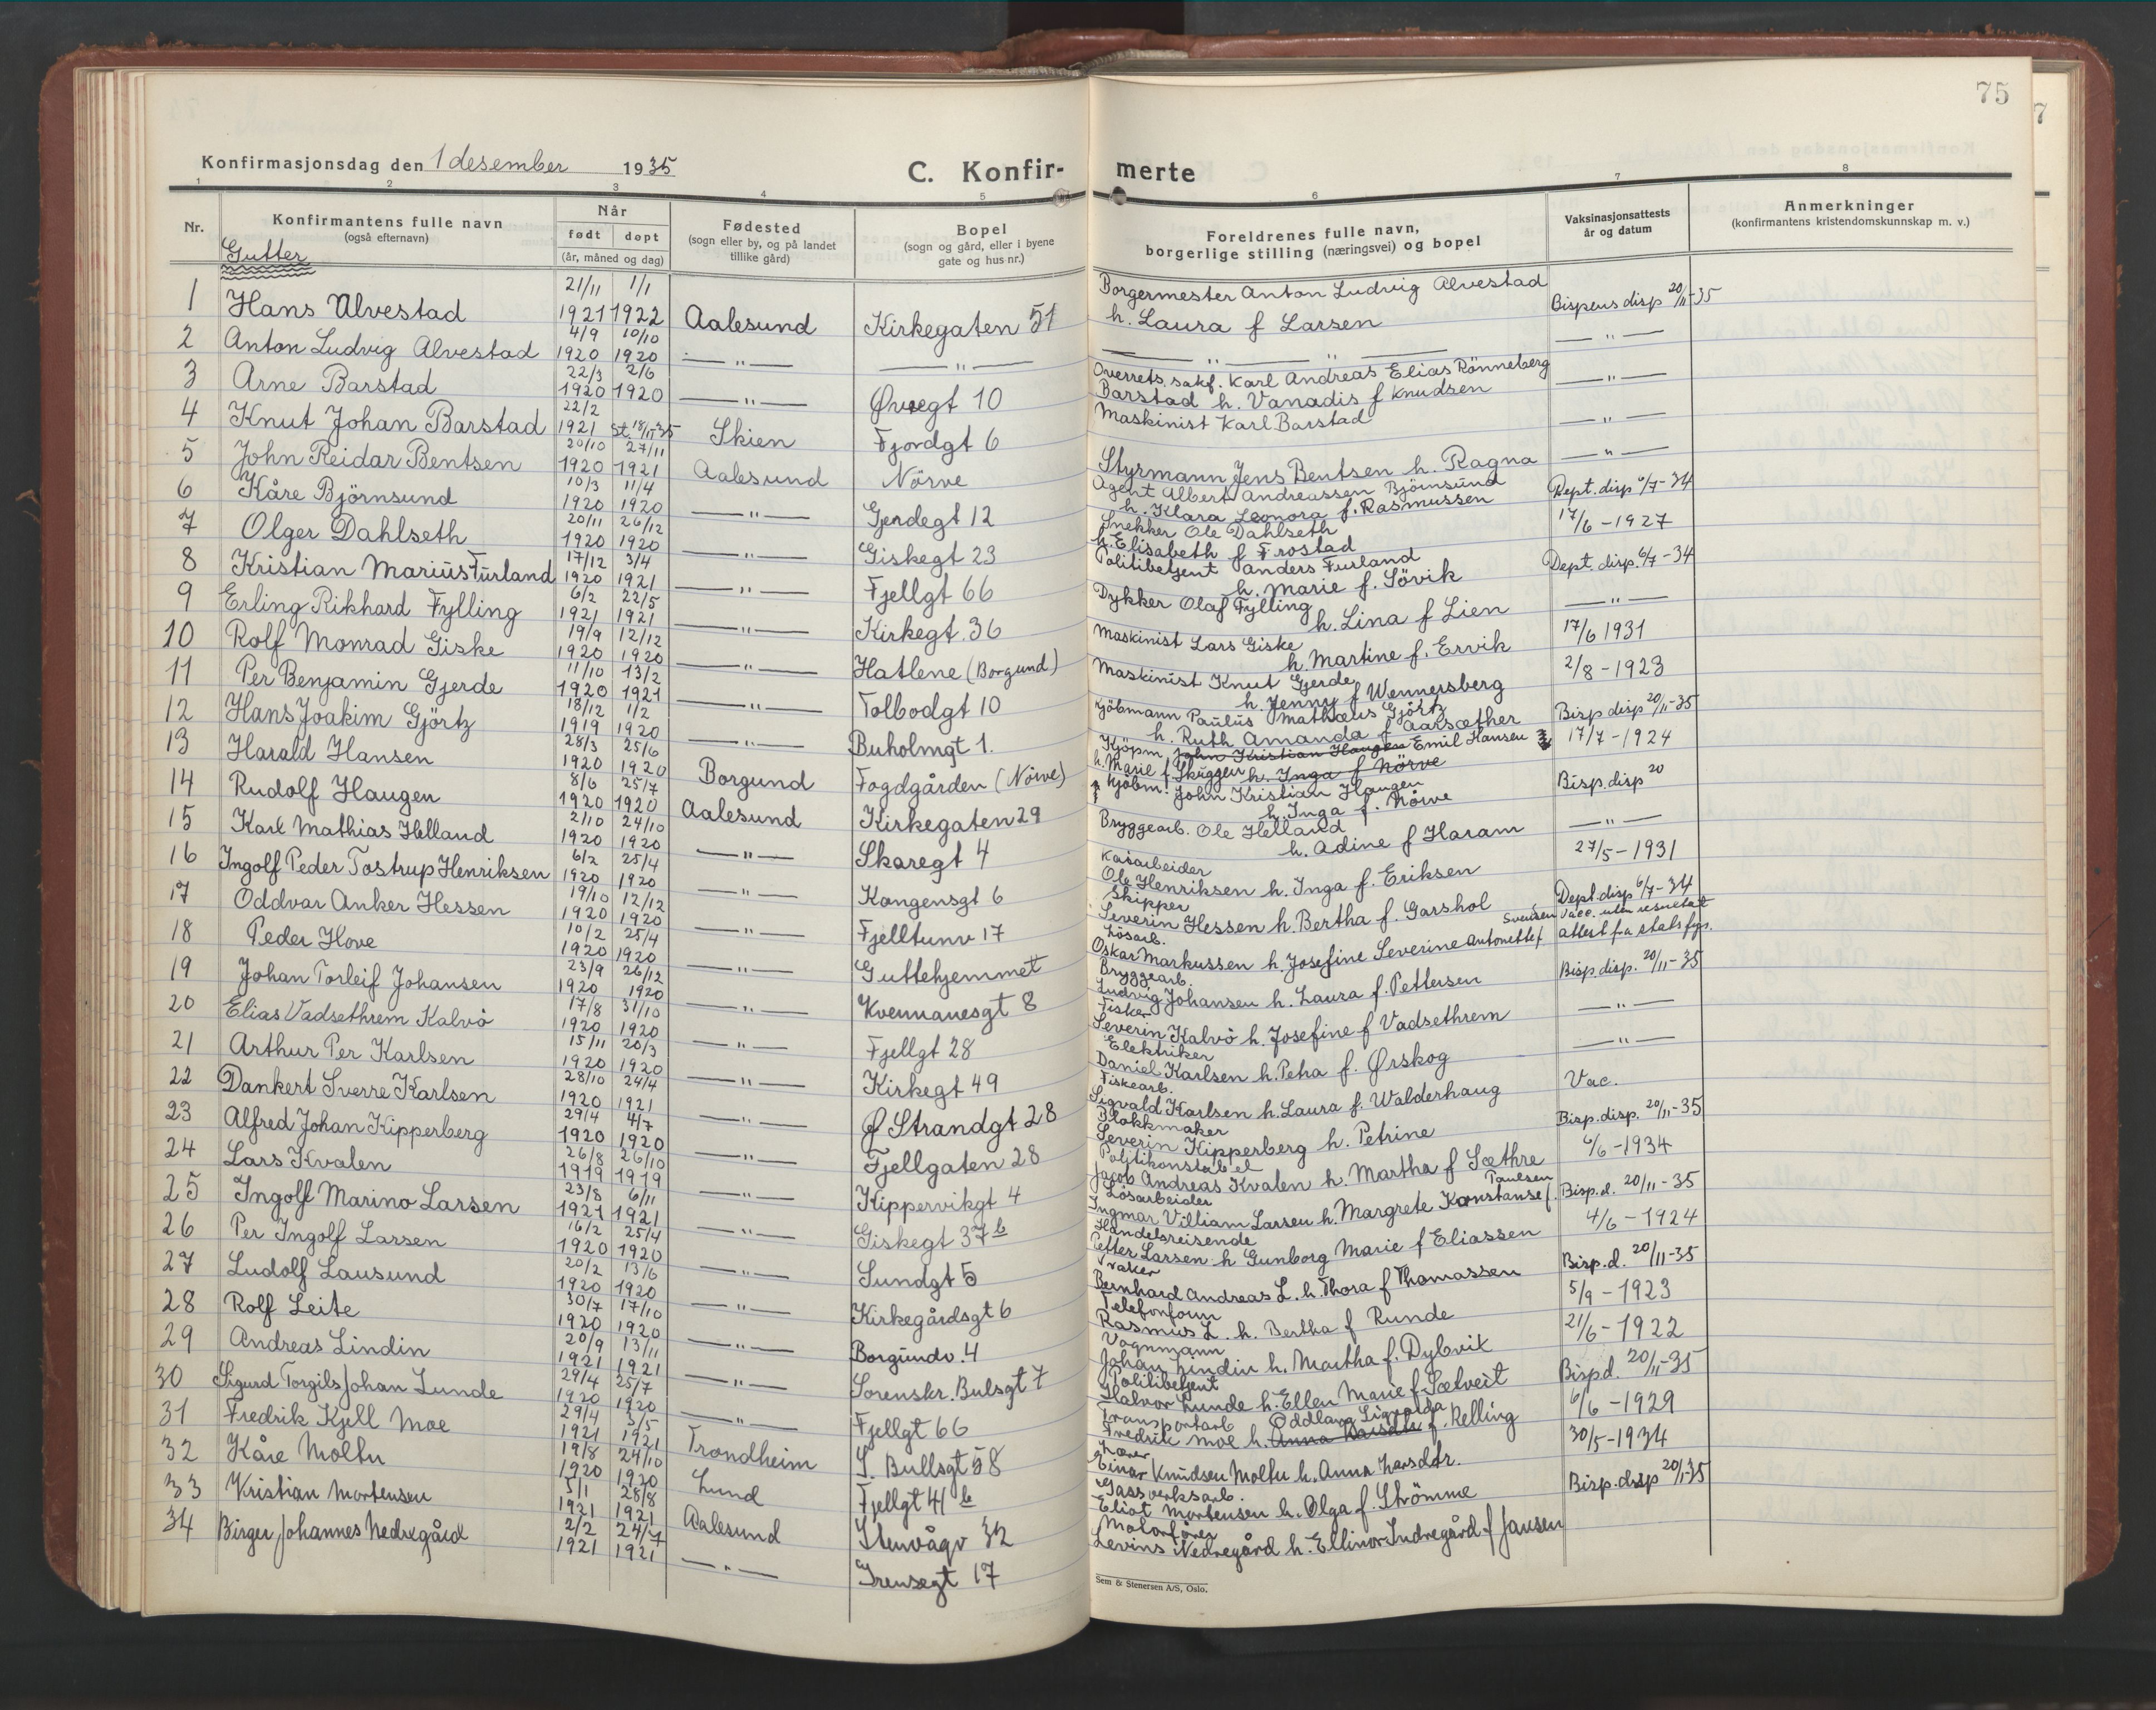 75
Konfirmasjonsdag den 1 desember 1935
C. Konfir- merte
1 2 3 4 5 6 7 8
Nr.
Konfirmantens fulle navn
(også efternavn)
Når
født døpt
(år, måned og dag)
Fødested
(sogn eller by, og på landet
tillike gård)
Bopel
(sogn og gård, eller i byene
gate og hus nr.)
Foreldrenes fulle navn,
borgerlige stilling (næringsvei) og bopel
Vaksinasjonsattests
år og datum
Anmerkninger
(konfirmantens kristendomskunnskap m. v.)
Gutter
1 Hans Alvestad 21/11 1921 1/1 1922 Aalesund Kirkegaten 51 Borgermester Anton Ludvig Alvestad h. Laura f Larsen Bispens disp 20/11-35
2 Anton Ludvig Alvestad 4/9 1920 10/10 1920 — " — — " — — " — " — — " —
3 Arne Barstad 22/3 1920 2/6 1920 — " — Øvregt 10 Overrets. sakf. Karl Andreas Elias Rönneberg Barstad h. Vanadis f Knudsen — " —
4 Knut Johan Barstad 22/2 1921 St. 18/11-35 Skien Fjordgt 6 Maskinist Karl Barstad — " —
5 John Reidar Bentsen 20/10 1920 27/11 1921 Aalesund Nörve Styrmann Jens Bentsen h. Ragna — " —
6 Kåre Björnsund 10/3 1920 11/4 1920 — " — Gjerdegt 12 Agent Albert Andreassen Björnsund h. Klara Leonora f. Rasmussen Dept. disp 6/7-34
7 Olger Dahlseth 20/11 1920 26/12 1920 — " — Giskegt 23 Snekker Ole Dahlseth h. Elisabeth f Frostad 17/6-1927
8 Kristian Marius Furland 17/12 1920 3/4 1921 — " — Fjellgt 66 Politibetjent Anders Furland h. Marie f. Sövik Dept. disp. 6/7-34
9 Erling Rikhard Fylling 6/2 1921 22/5 1921 — " — Kirkegt. 36 Dykker Olaf Fylling h. Lina f Lien — " —
10 Rolf Monrad Giske 19/9 1920 12/12 1920 — " — Hatlene (Borgund) Maskinist Lars Giske h. Martine f. Ervik 17/6 1931
11 Per Benjamin Gjerde 11/10 1920 13/2 1921 — " — Tolbodgt 10 Maskinist Knut Gjerde h. Jenny f Wennersberg 2/8-1923
12 Hans Joakim Gjörtz 18/12 1919 1/2 1920 — " — Buholmgt 1. Kjöbmann Paulus Mathæus Gjörtz h. Ruth Amanda f Aarsæther Bisp disp 20/11-35
13 Harald Hansen 28/3 1920 25/6 1920 Borgund Fogdgården (Nörve) Kjöpm. John Kristian Haugen Emil Hansen h. Marie f. Skuggen h. Inga f Nörve 17/7-1924
14 Rudolf Haugen 8/6 1920 25/7 1920 Aalesund Kirkegaten 29 Kjöbm. John Kristian Haugen h. Inga f. Nörve Bisp. disp 20
15 Karl Mathias Helland 2/10 1920 24/10 1920 — " — Skaregt 4 Bryggearb. Ole Helland h. Adine f Haram — " —
16 Ingolf Peder Tostrup Henriksen 6/2 1920 25/4 1920 — " — Kongensgt 6 Kaiarbeider Ole Henriksen h. Inga f. Eriksen 27/5-1931
17 Oddvar Anker Hessen 19/10 1920 12/12 1920 — " — Fjelltunv 17 Skipper Severin Hessen h. Bertha f. Garshol Dept. disp 6/7-34
18 Peder Hove 10/2 1920 25/4 1920 — " — Guttehjemmet Lösarb. Oskar Markussen h. Josefine Severine Antonette f Svensen Vacc. uten resultat attest fra stabsfys.
19 Johan Torleif Johansen 23/9 1920 26/12 1920 — " — Kvennanesgt 8 Bryggearb. Ludvig Johansen h. Laura f. Pettersen Bisp. disp. 20/11-35
20 Elias Vadsethrem Kalvö 17/8 1920 31/10 1920 — " — Fjellgt 28 Fisker Severin Kalvö h. Josefine f Vadsethrem — " —
21 Arthur Per Karlsen 15/11 1920 20/3 1920 — " — Kirkegt 49 Elektriker Daniel Karlsen h. Petra f. Ørskog — " —
22 Dankert Sverre Karlsen 28/10 1920 24/4 1921 — " — Ø Strandgt 28 Fiskearb. Sigvald Karlsen h. Laura f. Walderhaug Vac.
23 Alfred Johan Kipperberg 29/4 1920 4/7 1920 — " — Fjellgaten 28 Blokkmaker Severin Kipperberg h. Petrine Bisp. disp. 20/11-35
24 Lars Kvalen 26/8 1919 26/10 1919 — " — Kippervikgt 4 Politikonstabel Jacob Andreas Kvalen h. Martha f Sæthre 6/6-1934
25 Ingolf Marino Larsen 23/8 1921 6/11 1921 — " — Giskegt 37 b Lösarbeider Ingmar Villiam Larsen h. Margrete Konstanse f. Paulsen Bisp. d. 20/11-35
26 Per Ingolf Larsen 16/2 1920 25/4 1920 — " — Sundgt 5 Handelsreisende Petter Larsen h Gunborg Marie f Eliassen 4/6-1924
27 Ludolf Lausund 20/2 1920 13/6 1920 — " — Kirkegårdsgt 6 Vraker Bernhard Andreas L. h. Thora f Thomassen Bisp. d. 20/11-35
28 Rolf Leite 30/7 1920 17/10 1920 — " — Borgundv. 4 Telefonform Rasmus L. h. Bertha f Runde 5/9-1923
29 Andreas Lindin 20/9 1921 13/11 1921 — " — Sorenskr. Bulsgt 7 Vognmann Johan Lindin h. Martha f. Dybvik 21/6-1922
30 Sigurd Torgils Johan Lunde 29/4 1920 25/7 1920 — " — Fjellgt 66 Politibetjent Halvor Lunde h. Ellen Marie f. Sælveit Bisp d. 20/11-35
31 Fredrik Kjell Moe 29/4 1921 3/5 1921 Trondheim S. Bullsgt 58 Transportarb Fredrik Moe h. Oddlaug Ligvalda f. Relling 6/6-1929
32 Kåre Moltu 19/8 1920 24/10 1920 Lund Fjellgt 41 b Lærer Einar Knudsen Moltu h. Anna Larsdtr. 30/5-1934
33 Kristian Mortensen 5/1 1921 28/8 1921 Aalesund Stenvågv 32 Gassverksarb. Eliot Mortensen h. Olga f. Strömme Bisp. disp 20/11-35
34 Birger Johannes Nedregård 2/2 1921 24/7 1921 — " — Grensegt 17 Motorförer Levins Nedregård h. Ellinor Indregård f Jansen
Sem & Stenersen A/S, Oslo.